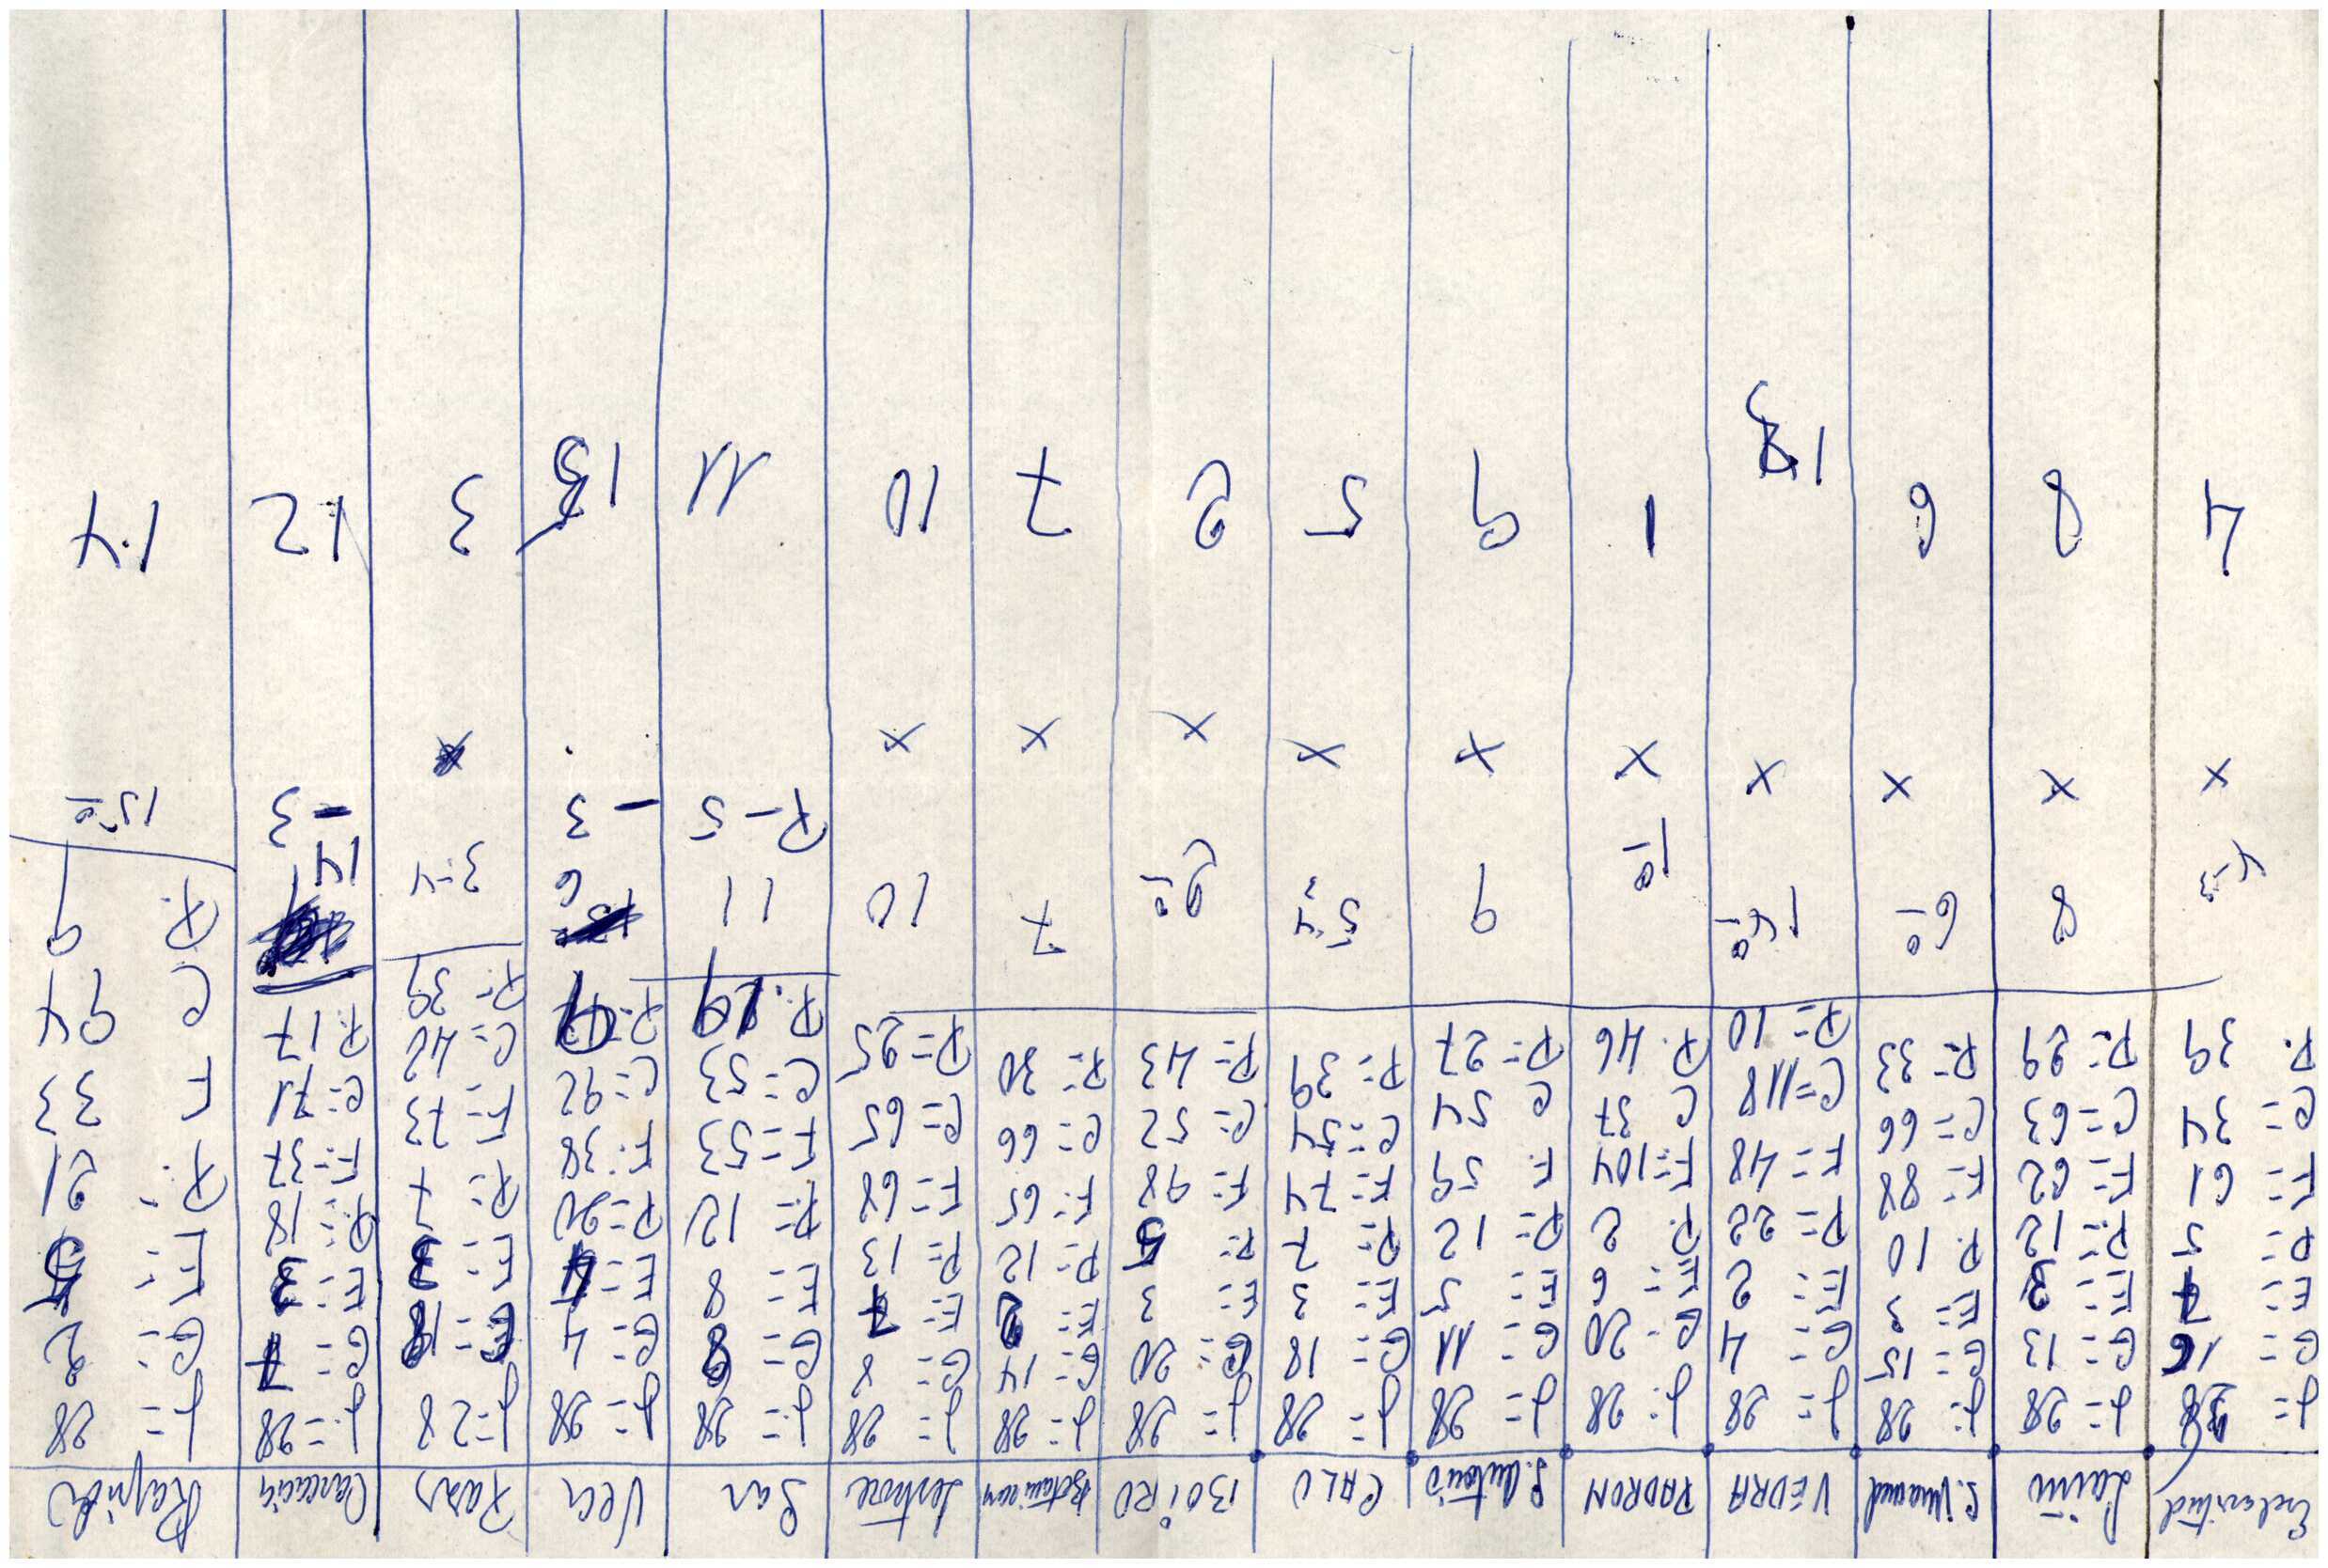 Esclavitud
J= 28
G= 16
E= 7
P= 5
F= 61
C= 34
P. 39
4-3
x
4
Laiño
J= 28
G= 13
E= 3
P= 12
F= 62
C= 63
P= 29
8
x
8
J= 28
G= 15
E= 3
P. 10
F= 88
C= 66
P= 33
6º
x
6
VEDRA
J= 28
G= 4
E= 2
P= 22
F= 48
C=118
P= 10
14º
x
13
PADRON
J= 28
G- 20
E= 6
P. 2
F=104
C 37
P. 46
1º
x
1
S. Antonio
J= 28
G= 11
E= 5
P= 12
F. 59
C 54
P= 27
9
x
9
CALO
J= 28
G= 18
E= 3
P= 7
F= 74
C= 54
P= 39
5-4
x
5
BOiRO
J= 28
G= 20
E= 3
P. 5
F= 98
C= 52
P= 43
2º
x
2
J= 28
G= 14
E= 2
P= 12
F= 65
C= 66
P= 30
7
x
7
Lestrove
J= 28
G= 8
E= 7
P= 13
F= 68
C= 65
P= 25
10
x
10
Sar
J= 28
G= 8
E= 8
P= 12
F= 53
C= 53
P. 19
11
P-5
11
J= 28
G= 4
E= 4
P= 20
F= 38
C= 92
P= 9
6
-3
J=28
G= 18
E= 3
P= 7
F= 73
C= 42
P= 39
3-4
x
3
J= 28
G= 7
E= 3
P= 18
F= 37
C= 71
P. 17
14
-3
12
Rapido
J= 28
G= 2
E= 5
P= 21
F 33
C 94
P. 9
15º
14